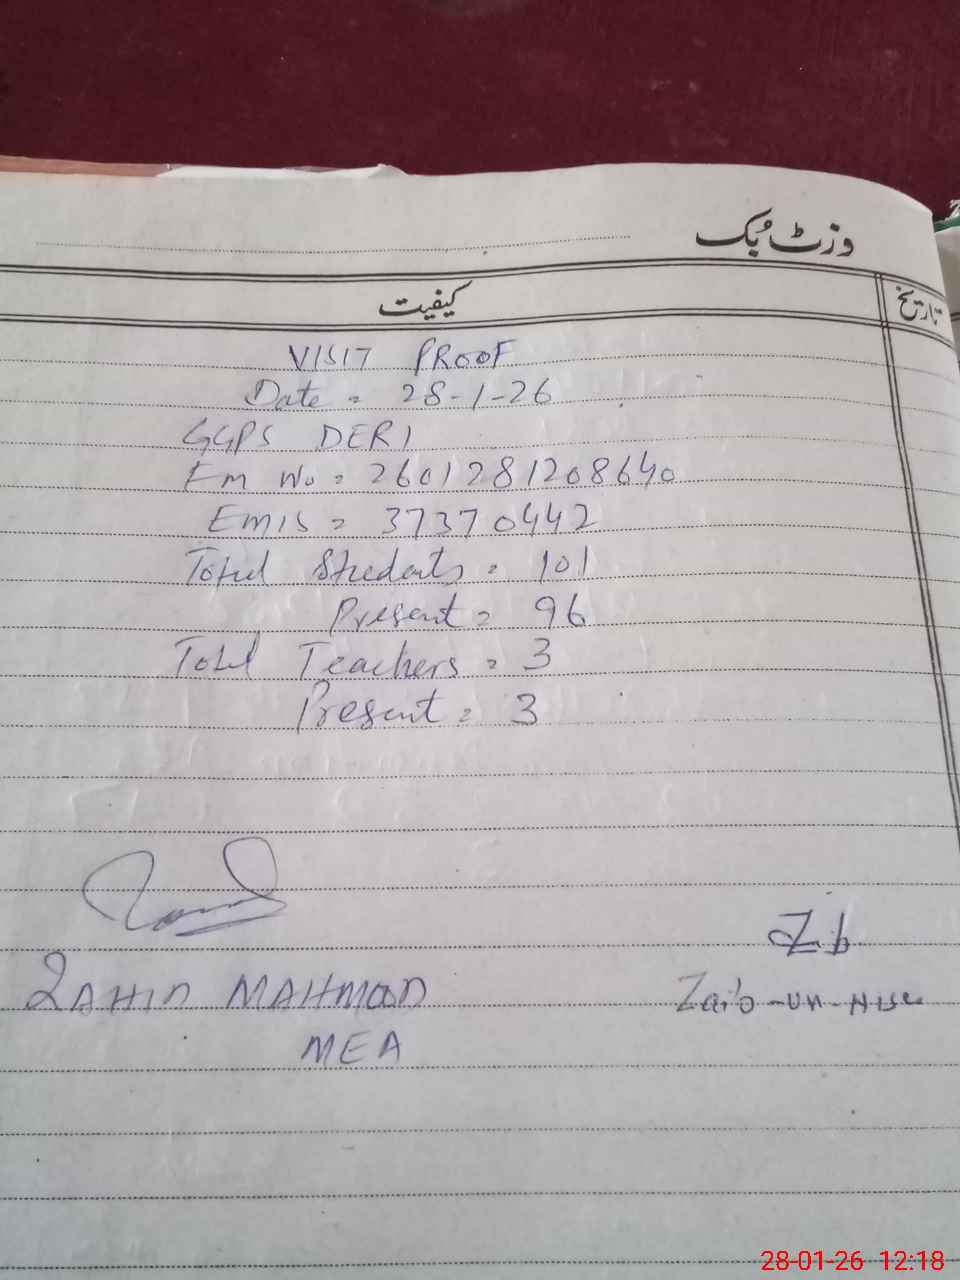 وزٹ بُک
تاریخ
کیفیت
VISIT PROOF
Date = 28-1-26
GGPS DERI
Em No = 2601281208640
EMIS = 37370442
Total Students = 101
Present = 96
Total Teachers = 3
Present = 3
Zb
ZAHID MAHMOOD
Zaib-un-Nisa
MEA
28-01-26 12:18